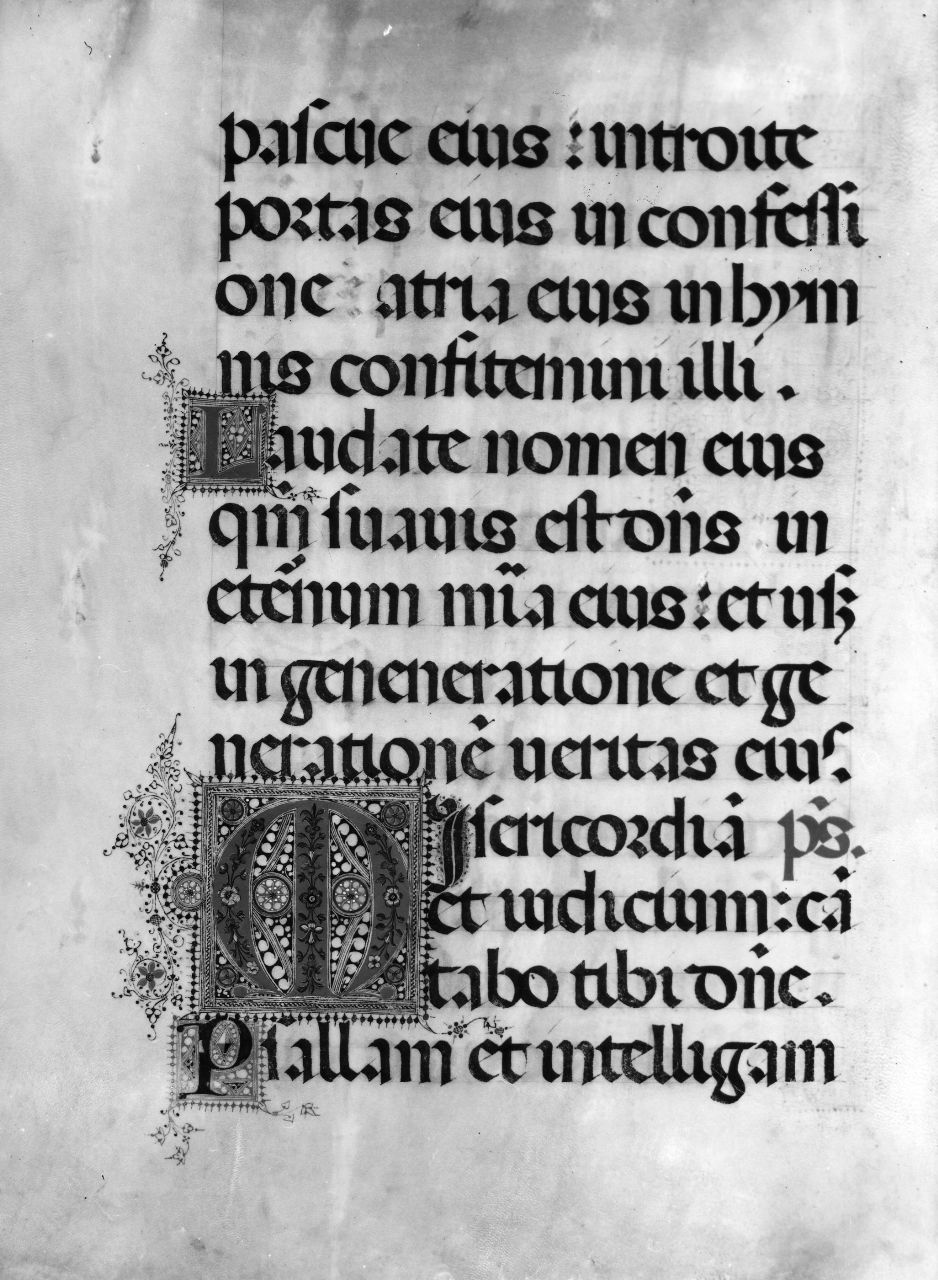 pascue eius : introite
portas eius in confessi
one atria eius in hym
nis confitemini illi .
Laudate nomen eius
qm̄ suauis est dn̄s in
etēnum mīa eius : et usꝫ
in geneneratione et ge
nerationē ueritas eius.
Misericordiā ps̄.
et iudicium : cā
tabo tibi dn̄e .
Psallam et intelligam